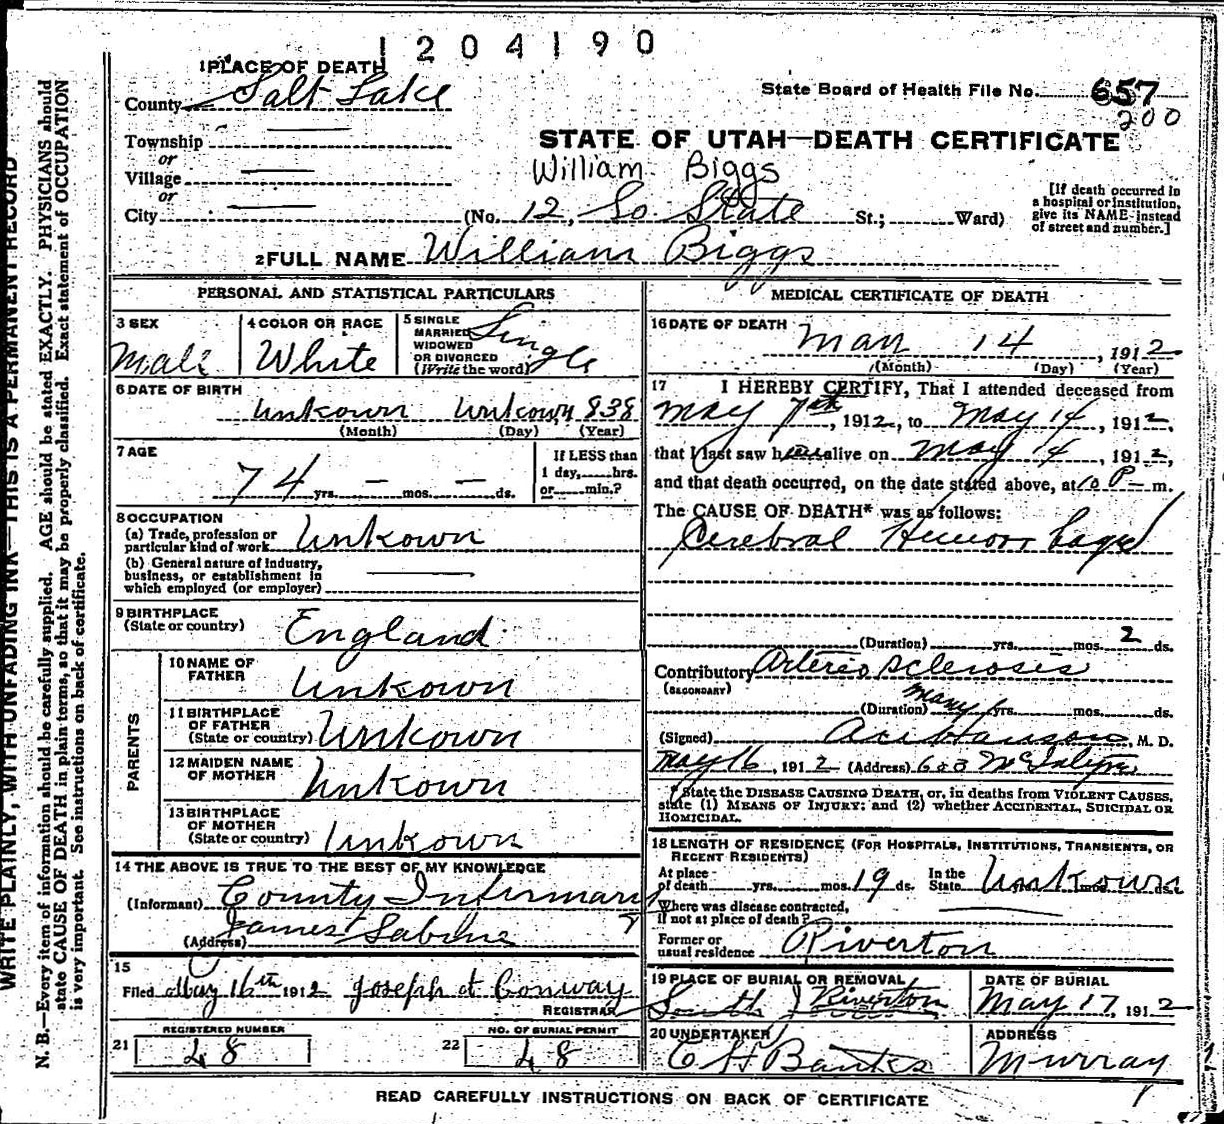 1204190
1 PLACE OF DEATH
County Salt Lake
State Board of Health File No. 657
200
Township
or
Village
or
City
STATE OF UTAH—DEATH CERTIFICATE
William Biggs
(No. 12, So State St.; Ward)
[If death occurred in a hospital or institution, give its NAME instead of street and number.]
2 FULL NAME William Biggs
PERSONAL AND STATISTICAL PARTICULARS
3 SEX
Male
4 COLOR OR RACE
White
5 SINGLE
MARRIED
WIDOWED
OR DIVORCED
(Write the word)
Single
6 DATE OF BIRTH
Unkown Unkown, 838
(Month) (Day) (Year)
7 AGE
74 yrs. – mos. – ds.
If LESS than
1 day, hrs.
or min.?
8 OCCUPATION
(a) Trade, profession or
particular kind of work Unkown
(b) General nature of industry,
business, or establishment in
which employed (or employer)
9 BIRTHPLACE
(State or country) England
PARENTS
10 NAME OF
FATHER Unkown
11 BIRTHPLACE
OF FATHER
(State or country) Unkown
12 MAIDEN NAME
OF MOTHER Unkown
13 BIRTHPLACE
OF MOTHER
(State or country) Unkown
14 THE ABOVE IS TRUE TO THE BEST OF MY KNOWLEDGE
(Informant) County Infirmary
James Sabine
(Address)
15
Filed May 16th 1912 Joseph Conway
REGISTRAR
REGISTERED NUMBER
21 48
NO. OF BURIAL PERMIT
22 48
MEDICAL CERTIFICATE OF DEATH
16 DATE OF DEATH
May 14, 1912
(Month) (Day) (Year)
17 I HEREBY CERTIFY, That I attended deceased from
May 7th, 1912, to May 14, 1912,
that I last saw h alive on May 14, 1912,
and that death occurred, on the date stated above, at 10 P–m.
The CAUSE OF DEATH* was as follows:
Cerebral Hemorrhage
(Duration) yrs. mos. 2 ds.
Contributory Arterio sclerosis
(SECONDARY)
(Duration) many yrs. mos. ds.
(Signed) Hanson, M. D.
May 16, 1912 (Address)
State the DISEASE CAUSING DEATH, or, in deaths from VIOLENT CAUSES,
state (1) MEANS OF INJURY; and (2) whether ACCIDENTAL, SUICIDAL OR
HOMICIDAL.
18 LENGTH OF RESIDENCE (FOR HOSPITALS, INSTITUTIONS, TRANSIENTS, OR
RECENT RESIDENTS)
At place
of death yrs. mos. 19 ds. In the
State Unkown mos. ds.
Where was disease contracted,
if not at place of death?
Former or
usual residence Riverton
19 PLACE OF BURIAL OR REMOVAL
South Riverton
DATE OF BURIAL
May 17, 1912
20 UNDERTAKER
ADDRESS
Murray
READ CAREFULLY INSTRUCTIONS ON BACK OF CERTIFICATE
WRITE PLAINLY, WITH UNFADING INK—THIS IS A PERMANENT RECORD
N. B.—Every item of information should be carefully supplied. AGE should be stated EXACTLY. PHYSICIANS should
state CAUSE OF DEATH in plain terms, so that it may be properly classified. Exact statement of OCCUPATION
is very important. See instructions on back of certificate.